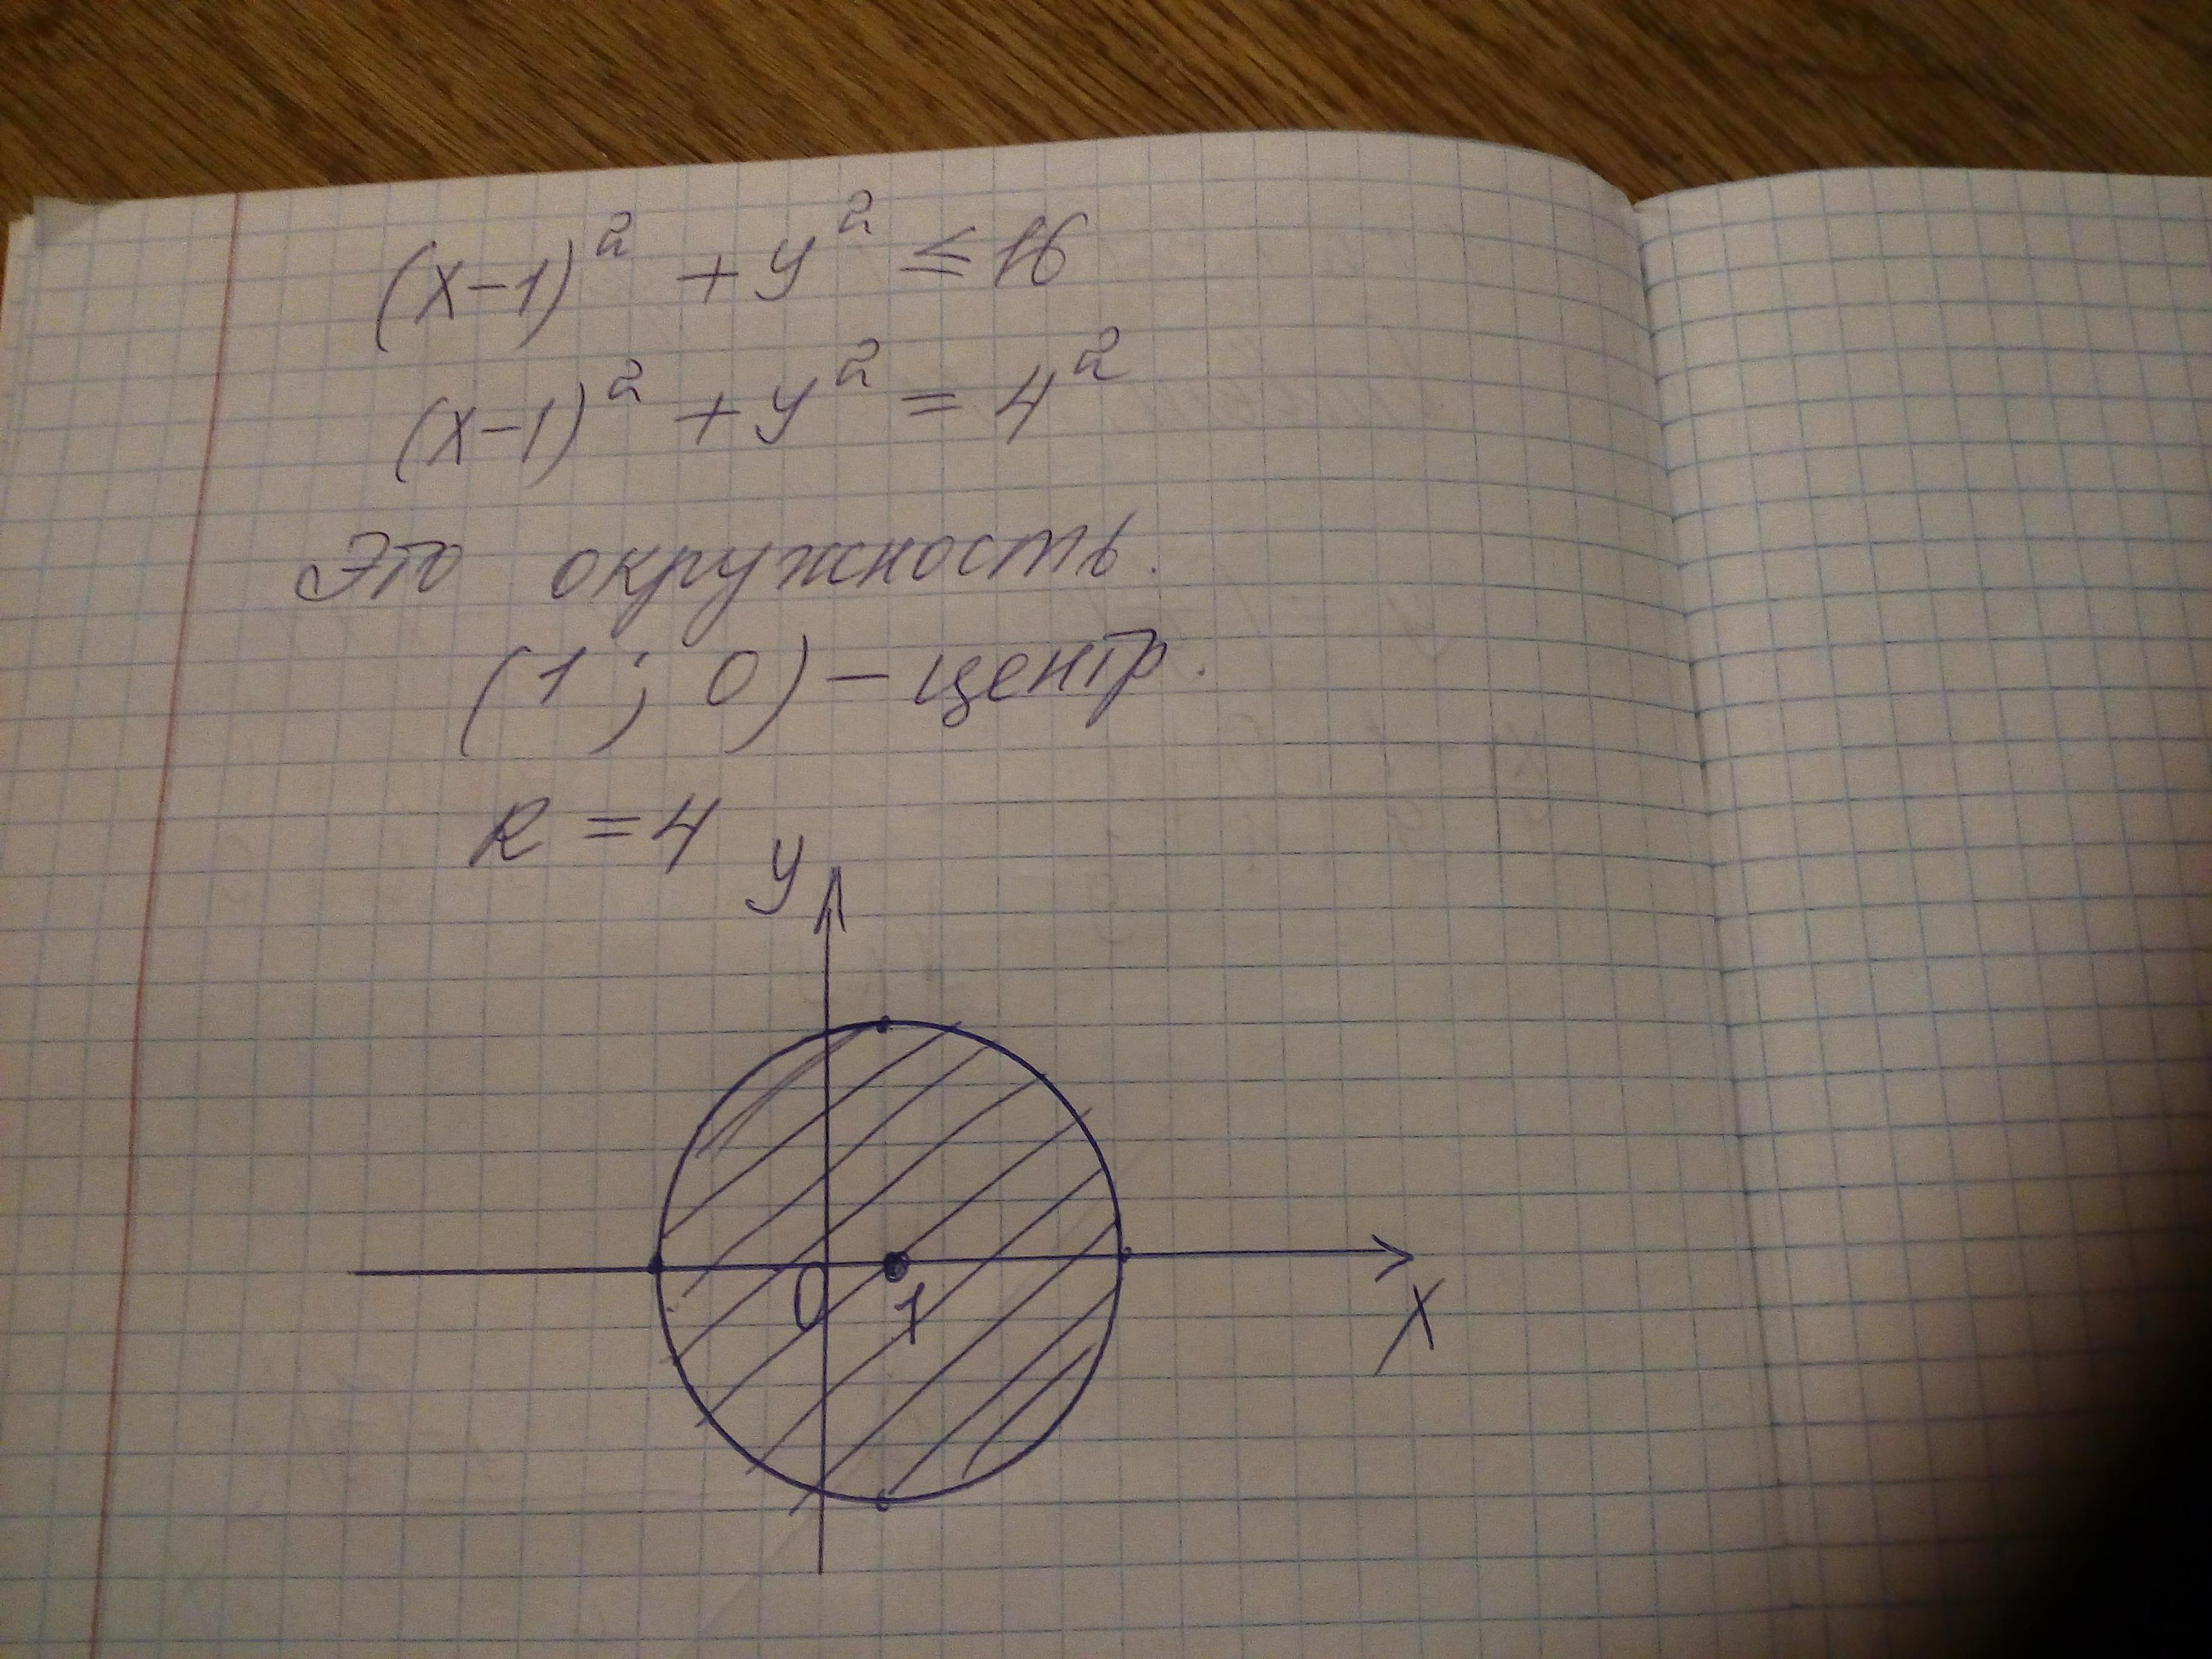 (x-1)² + y² ≤ 16
(x-1)² + y² = 4²
Это окружность.
(1; 0) - центр.
R = 4
y
0 1
x